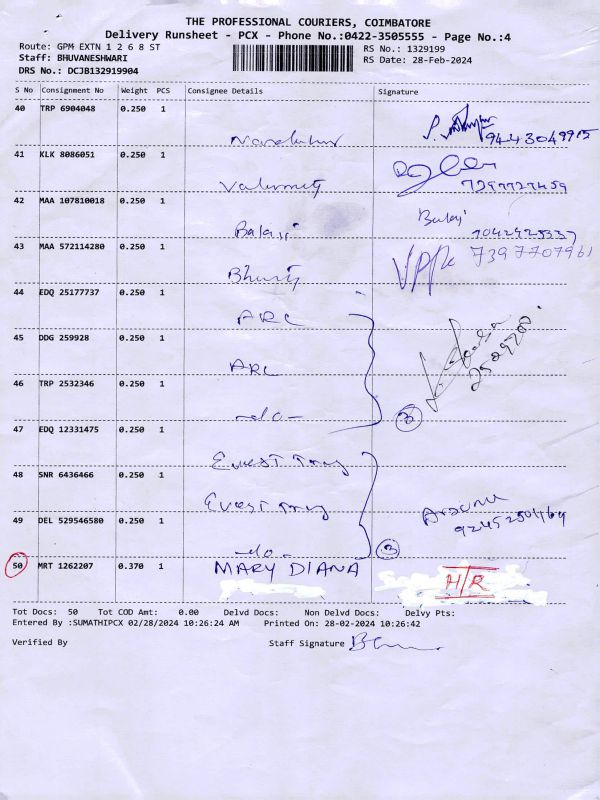 THE PROFESSIONAL COURIERS, COIMBATORE
Delivery Runsheet - PCX - Phone No.:0422-3505555 - Page No.:4
Route: GPM EXTN 1 2 6 8 ST
RS No.: 1329199
Staff: BHUVANESHWARI
RS Date: 28-Feb-2024
DRS No.: DCJB132919904
S No Consignment No Weight PCS Consignee Details Signature
40 TRP 6904048 0.250 1
9443049915
41 KLK 8086051 0.250 1
42 MAA 107810018 0.250 1
Balaji Balaji
43 MAA 572114280 0.250 1
7397707961
44 EDQ 25177737 0.250 1
ARC
45 DDG 259928 0.250 1
ARC
46 TRP 2532346 0.250 1
-do- 3
47 EDQ 12331475 0.250 1
48 SNR 6436466 0.250 1
49 DEL 529546580 0.250 1
-do- 3
50 MRT 1262207 0.370 1 MARY DIANA
HTR
Tot Docs: 50 Tot COD Amt: 0.00 Delvd Docs: Non Delvd Docs: Delvy Pts:
Entered By :SUMATHIPCX 02/28/2024 10:26:24 AM Printed On: 28-02-2024 10:26:42
Verified By Staff Signature